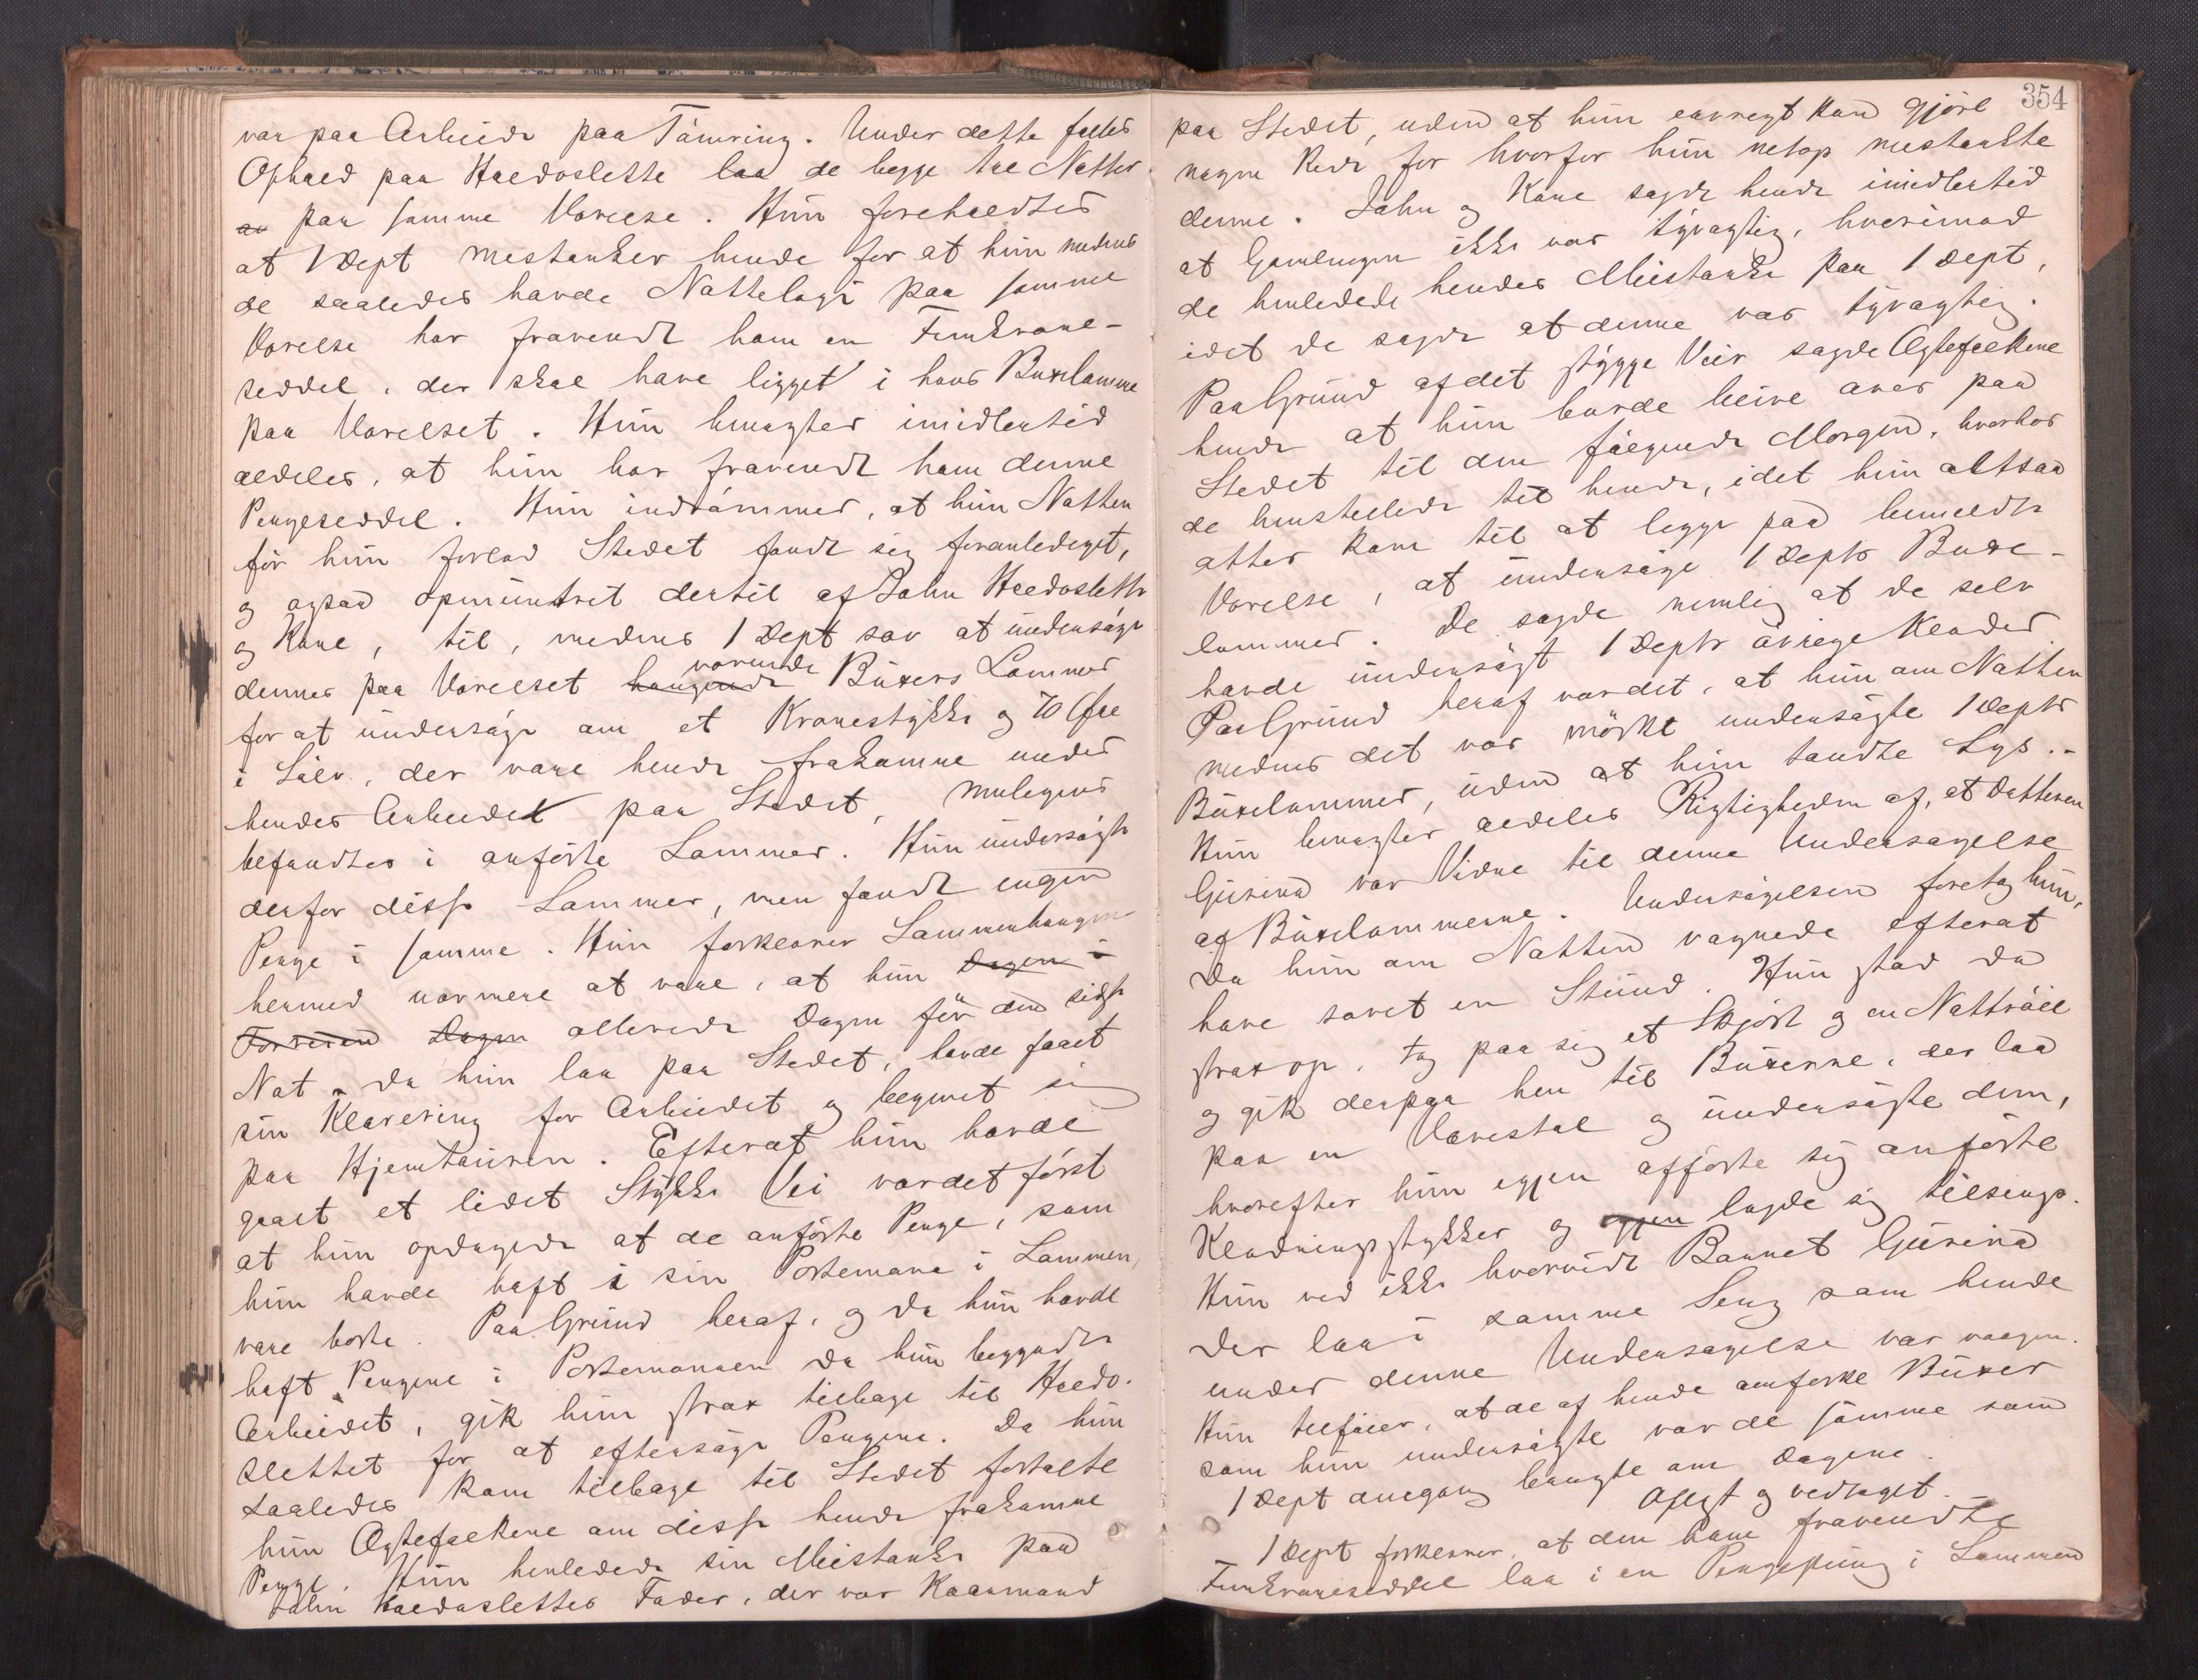 var paa Arbeide paa Tømring. Under dette fælles
Ophold paa Haldoslette laa de begge to Nætter
paa samme Værelse. Hun foreholdtes
at 1 Dept mistænker hende for at hun medens
de saaledes havde Nattelogi paa samme
Værelse har fravendt ham en Femkrone-
seddel, der skal have ligget i hans Buxelomme
paa Værelset. Hun benægter imidlertid
aldeles, at hun har fravendt ham denne
Pengeseddel. Hun indrømmer, at hun Natten
før hun forlod Stedet fandt sig foranlediget,
og ogsaa opmuntret dertil af John Haldoslette
og Kone, til, medens 1 Dept sov at undersøge
dennes paa Værelset hængende værende Buxers Lommer
for at undersøge om et Kronestykke og 70 Øre
i Sølv, der vare hende frakomne under
hendes Arbeidet paa Stedet, muligens
befandtes i anførte Lommer. Hun undersøgte
derfor disse Lommer, men fandt ingen
Penge i samme. Hun forklarer Sammenhængen
hermed nærmere at være, at hun Dagen i
Forveien Dagen allerede Dagen før den sidste
Nat, da hun laa paa Stedet, havde faaet
sin Klarering for Arbeidet og begivet sig
paa Hjemturen. Efterat hun havde
gaaet et lidet Stykke Vei var det først
at hun opdagede at de anførte Penge, som
hun havde haft i sin Portemonæ i Lommen,
vare borte. Paa Grund heraf, og da hun havde
haft Pengene i Portemonnæen da hun begyndte
Arbeidet, gik hun strax tilbage til Haldo-
slettet for at eftersøge Pengene. Da hun
saaledes kom tilbage til Stedet fortalte
hun Ægtefolkene om disse hende frakomne
Penge. Hun henledede sin Mistanke paa
John Haldoslettes Fader, der var Kaarmand
354
paa Stedet, uden at hun forøvrigt kan gjøre
nogen Rede for hvorfor hun netop mistænkte
denne. John og Kone sagde hende imidlertid
at Gamlingen ikke var tyvagtig, hvorimod
de henledede hendes Mistanke paa 1 Dept,
idet de sagde at denne var tyvagtig.
Paa Grund af det stygge Veir sagde Ægtefolkene
hende at hun burde blive over paa
Stedet til den følgende Morgen, hvorhos
de henstillede til hende, idet hun altsaa
atter kom til at ligge paa bemeldte
Værelse, at undersøge 1 Depts Buxe-
lommer. De sagde nemlig at de selv
havde undersøgt 1 Depts øvrige Klæder.
Paa Grund heraf var det, at hun om Natten
medens det var mørkt undersøgte 1 Depts
Buxelommer, uden at hun tændte Lys.-
Hun benægter aldeles Rigtigheden af, at Datteren
Gurina var Vidne til denne Undersøgelse
af Buxelommerne. Undersøgelsen foretog hun,
da hun om Natten vaagnede efterat
have sovet en Stund. Hun stod da
strax op, tog paa sig et Skjørt og en Nattrøie
og gik derpaa hen til Buxerne, der laa
paa en Vævestol og undersøgte dem,
hvorefter hun igjen afførte sig anførte
Klædningsstykker og igjen lagde sig tilsengs.
Hun ved ikke hvorvidt Barnet Gurina
der laa i samme Seng som hende
under denne Undersøgelse var vaagen.
Hun tilføier, at de af hende omforkl Buxer
som hun undersøgte var de samme som
1 Dept dengang brugte om Dagene.
Oplæst og vedtaget.-
1 Dept forklarer, at den ham fravendte
Femkroneseddel laa i en Pengepung i Lommen